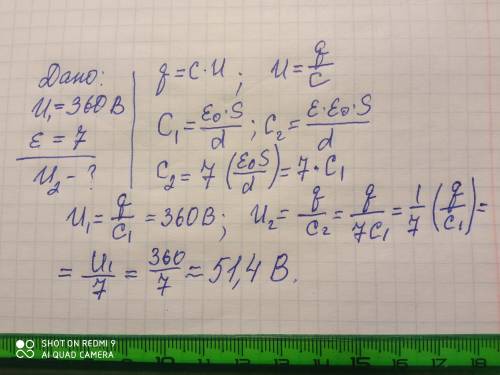 Дано:
U₁=360В
ε = 7
U₂ - ?
q = C·U ; U = q/C
C₁ = ε₀·S/d ; C₂ = ε·ε₀·S/d
C₂ = 7 (ε₀S/d) = 7·C₁
U₁ = q/C₁ = 360В ; U₂ = q/C₂ = q/7C₁ = 1/7 (q/C₁) =
= U₁/7 = 360/7 ≈ 51,4 В.
SHOT ON REDMI 9
AI QUAD CAMERA